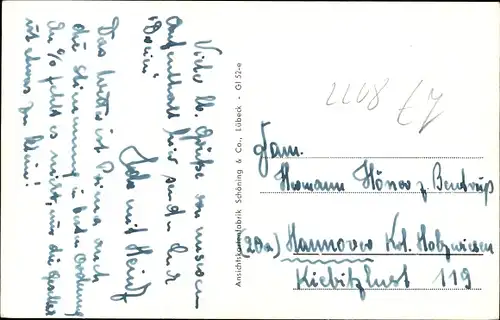 Viele lb. Grüße von unserem
Aufenthalt hier senden Euch
Das Wetter ist Prima auch
die Stimmung in bester Ordnung
An % fehlt es nicht, nur die
ist etwas zu klein!
und Heinz
Ansichtskartenfabrik Schöning & Co., Lübeck - Gl 52-e
2208
Fam.
Hermann Höner z. Bentrup
(20a) Hannover Kol. Holzwiesen
Kiebitzlust 119